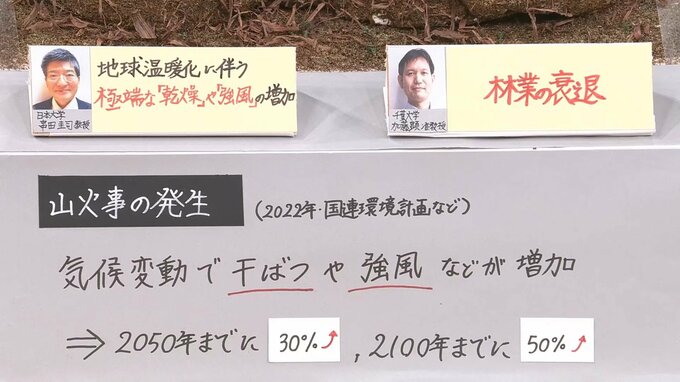 地球温暖化に伴う
極端な「乾燥」や「強風」の増加
日本大学
串田圭司 教授
林業の衰退
千葉大学
加藤顕 准教授
山火事の発生 (2022年・国連環境計画など)
気候変動で干ばつや強風などが増加
⇒2050年までに 30%↗, 2100年までに 50%↗